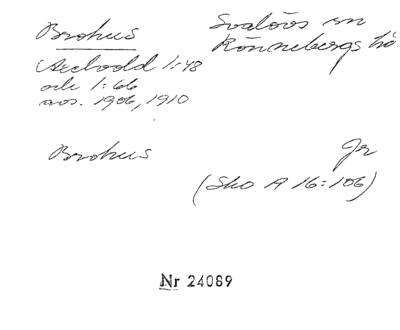 Brohus
Svalövs sn
Rönnebergs hd
Axelvold 1:48
och 1:66
avs. 1906, 1910
Brohus
Jr
(Sko A 16:106)
Nr 24089